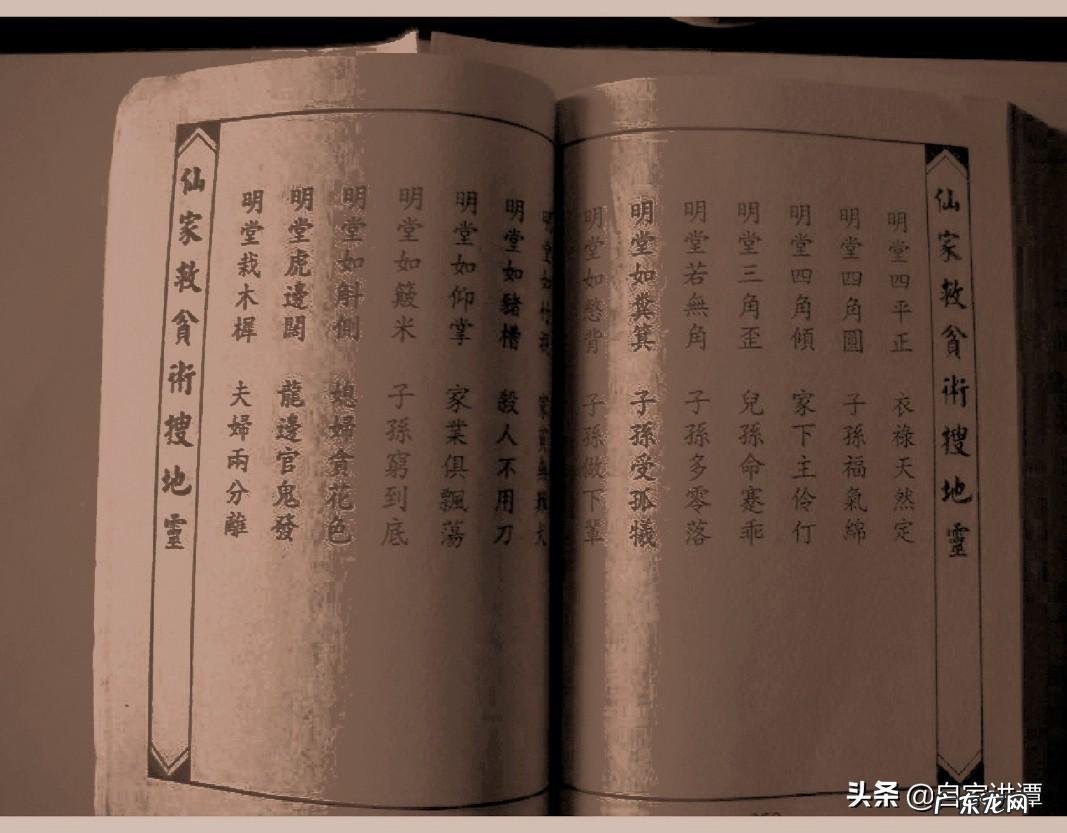 仙家救貧術搜地靈
明堂四平正 衣祿天然定
明堂四角圓 子孫福氣綿
明堂四角傾 家下主伶仃
明堂三角歪 兒孫命蹇乖
明堂若無角 子孫多零落
明堂如糞箕 子孫受孤犧
明堂如憋背 子孫做下輩
明堂如
明堂如豬槽 殺人不用刀
明堂如仰掌 家業俱飄蕩
明堂如簸米 子孫窮到底
明堂如斛側 媳婦貪花色
明堂虎邊闊 龍邊官鬼發
明堂栽木樨 夫婦兩分離
仙家救貧術搜地靈
头条 @
广东龙网